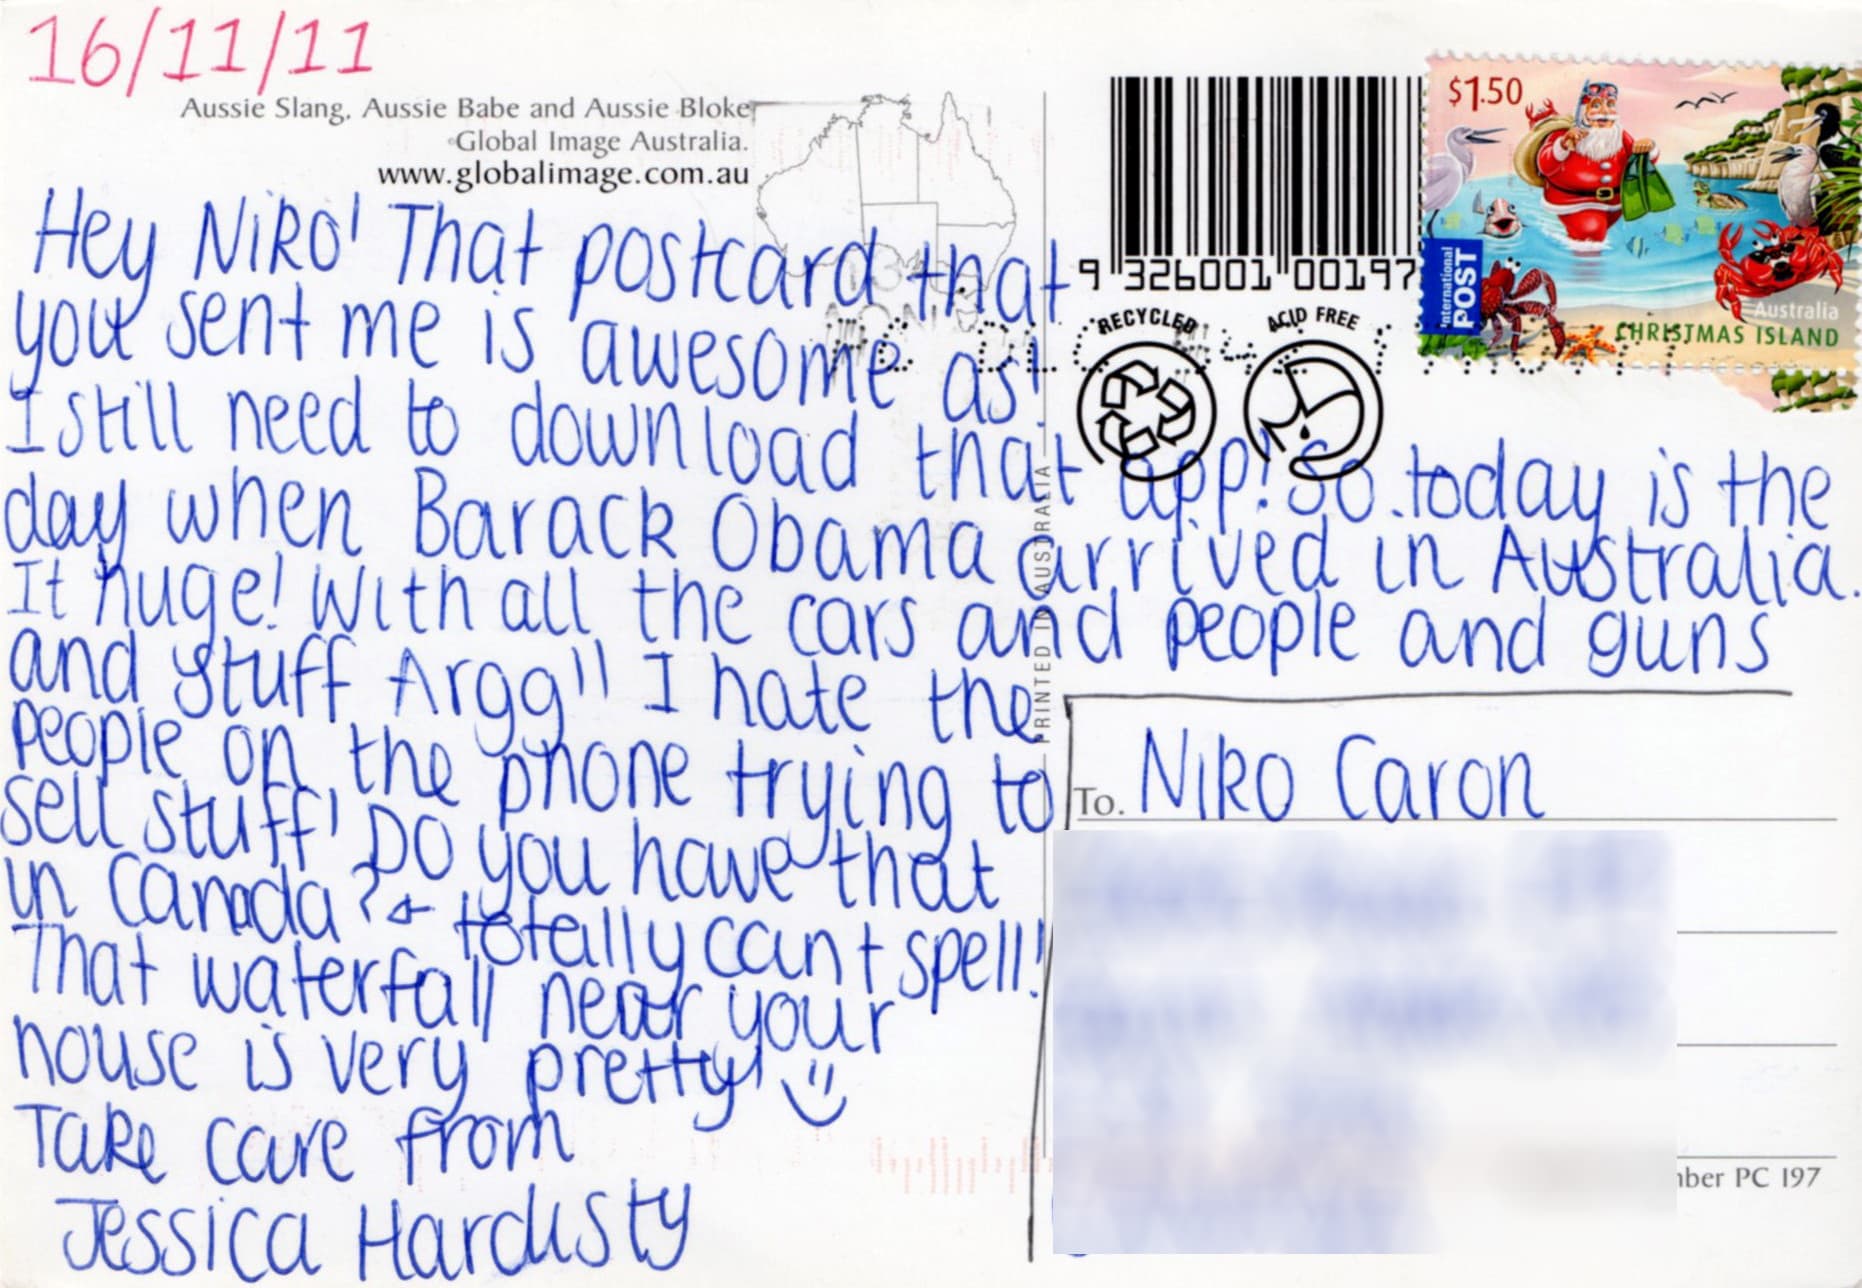 16/11/11
Aussie Slang, Aussie Babe and Aussie Bloke
©Global Image Australia.
www.globalimage.com.au
Hey Niko! That postcard that
you sent me is awesome as!
I still need to download that app! So today is the
day when Barack Obama arrived in Australia.
It huge! With all the cars and people and guns
and stuff Argg!! I hate the
people on the phone trying to
sell stuff! Do you have that
in Canada? ← totally can't spell!
That waterfall near your
house is very pretty!
Take care from
Jessica Hardisty
9 326001 00197
RECYCLED
ACID FREE
PRINTED IN AUSTRALIA
$1.50
International
POST
Australia
CHRISTMAS ISLAND
To. Niko Caron
PC 197